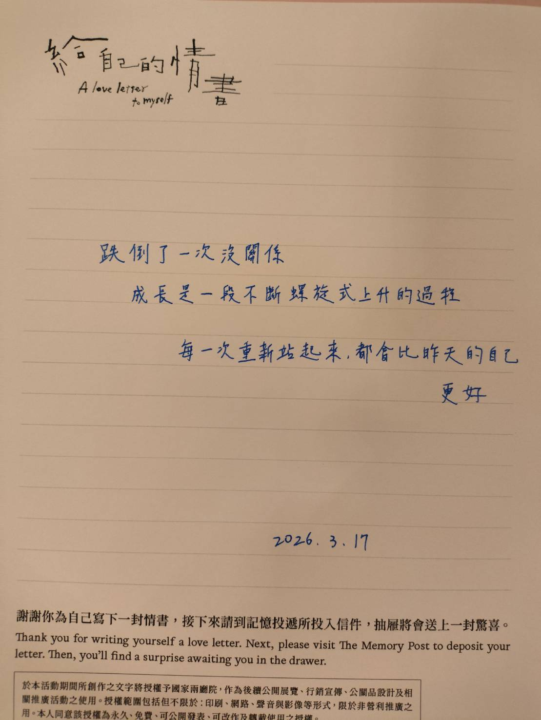 給自己的情書
A love letter
to myself
跌倒了一次沒關係
成長是一段不斷螺旋式上升的過程
每一次重新站起來,都會比昨天的自己
更好
2026.3.17
謝謝你為自己寫下一封情書，接下來請到記憶投遞所投入信件，抽屜將會送上一封驚喜。
Thank you for writing yourself a love letter. Next, please visit The Memory Post to deposit your
letter. Then, you'll find a surprise awaiting you in the drawer.
於本活動期間所創作之文字將授權予國家兩廳院，作為後續公開展覽、行銷宣傳、公關品設計及相
關推廣活動之使用。授權範圍包括但不限於：印刷、網路、聲音與影像等形式，限於非營利推廣之
用。本人同意該授權為永久、免費、可公開發表、可改作及轉載使用之授權。